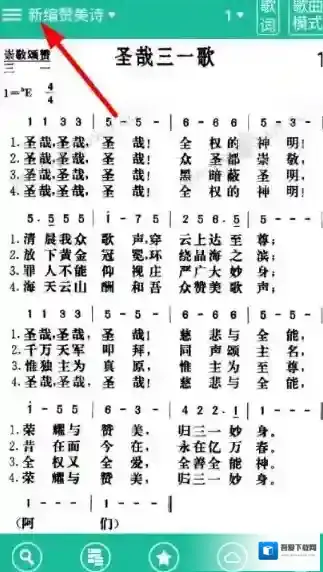 新编赞美诗 1 歌词 歌曲模式
崇敬颂赞
三一
圣哉三一歌
1=ᵇE 4/4
1 1 3 3 | 5 - 5 - | 6 - 6 6 | 5 - 3 - |
1. 圣哉,圣哉, 圣 哉! 全 权的 神 明!
2. 圣哉,圣哉, 圣 哉! 众 圣都 崇 敬,
3. 圣哉,圣哉, 圣 哉! 黑 暗蔽 圣 明,
4. 圣哉,圣哉, 圣 哉! 全 权的 神 明!
5. 5 5 5 | i - 7 5 | 2 5 6. 5 | 5 - - - |
1. 清 晨我众 歌 声,穿 云上达 至 尊;
2. 放 下黄金 冠 冕,环 绕晶海 之 滨;
3. 罪 人不能 仰 视庄 严广大 妙 身;
4. 海 天云山 酬 和吾 众赞美 歌 声;
1 1 3 3 | 5 - 5 - | 6 - 6 6 | 5 - 5 - |
1. 圣哉,圣哉, 圣 哉! 慈 悲与 全 能,
2. 千万天军 叩 拜, 同 声颂 主 名,
3. 惟独主为 真 原, 惟 主为 至 尊,
4. 圣哉,圣哉, 圣 哉! 慈 悲与 全 能,
i - 5 5 | 6 - 3 - | 4 2 2. 1 | 1 - - - |
1. 荣 耀与 赞 美, 归三一 妙 身。
2. 昔 在而 今 在, 永在亿 万 春。
3. 全 权又 全 爱, 全善全 能 神。
4. 荣 耀与 赞 美, 归三一 妙 身。
1 - - - | 1 - - - ‖
(阿 们)
吾爱下载网